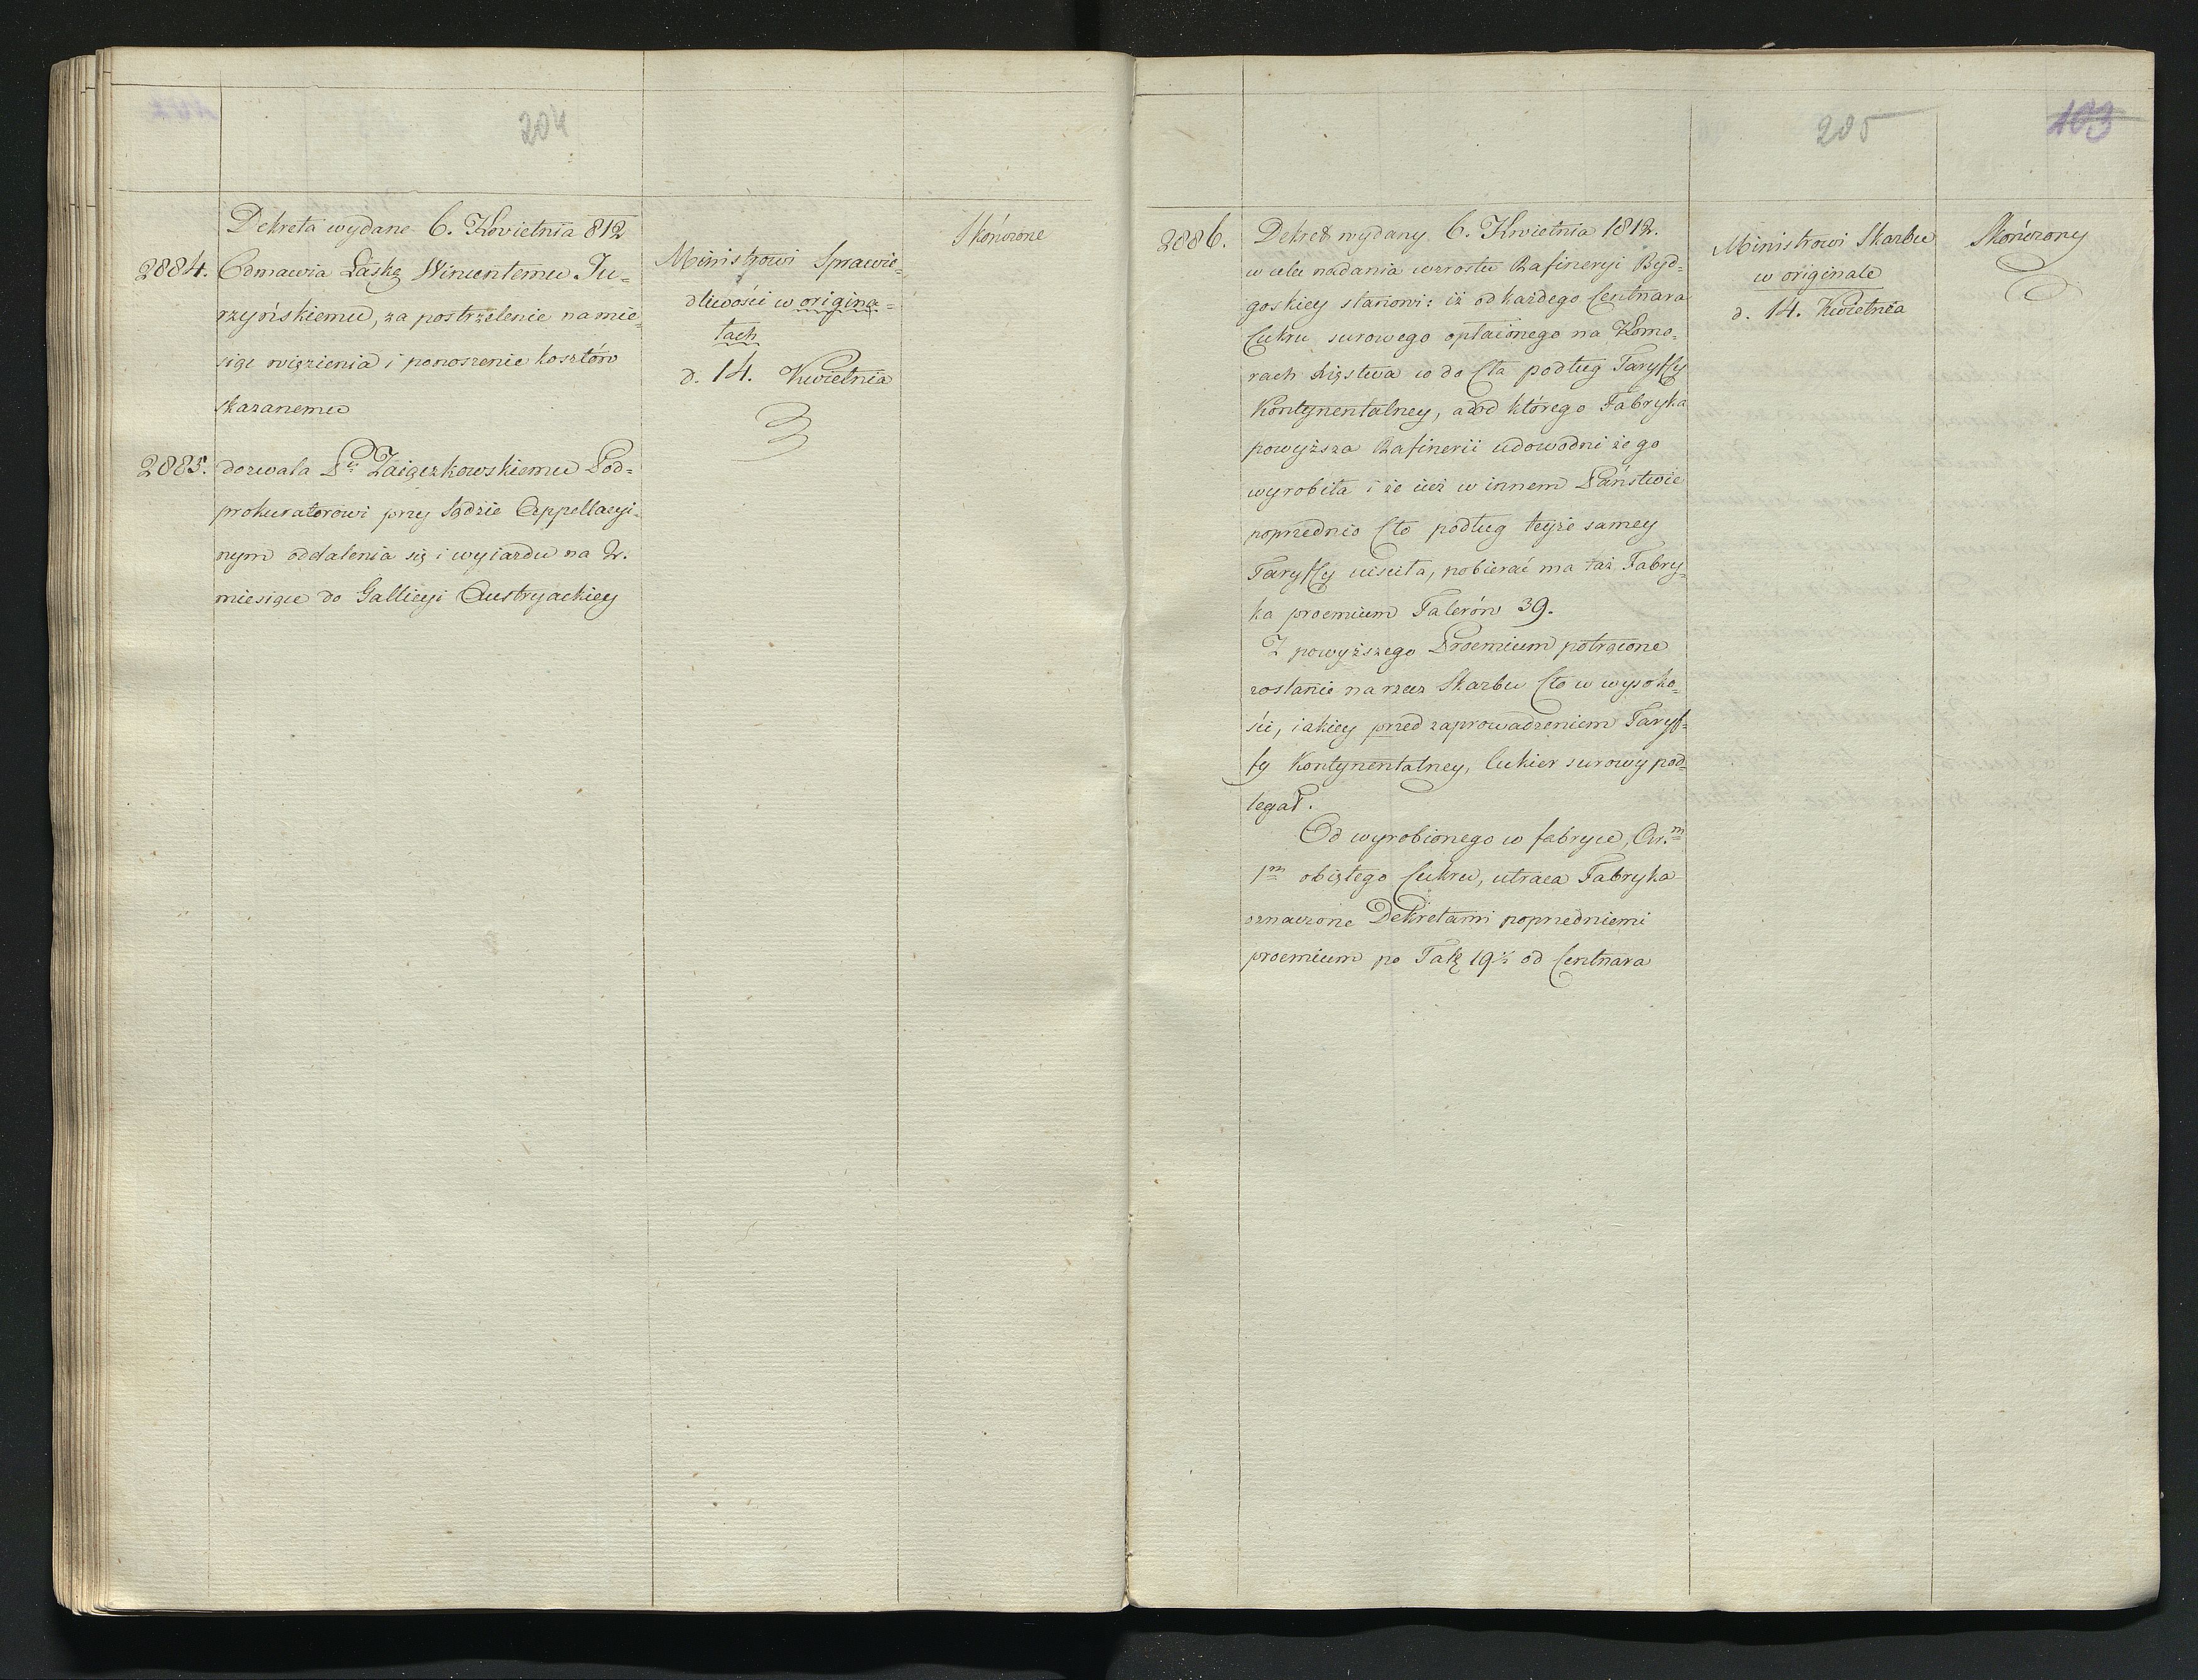 204
Dekreta wydane 6. Kwietnia 812
2884. Odmawia Łaskę Wincentemu Ju-
rzyńskiemu, za postrzelenie na mie-
siąc więzienia i ponoszenie kosztów
skazanemu
2885. dozwala Pu Zaiączkowskiemu Pod-
prokuratorowi przy Sądzie Appellacyi-
nym oddalenia się i wyiazdu na 2.
miesiące do Gallicyi Austryackiey
Ministrowi Sprawie-
dliwości w origina-
łach
d. 14. Kwietnia
Skończone
205
103
2886. Dekret wydany 6. Kwietnia 1812.
w celu nadania wzrostu Rafineryi Byd-
goskiey stanowi: iż od każdego Centnara
Cukru surowego opłaconego na Komo-
rach Xięstwa co do Cła podług Taryffy
Kontynentalney, a od którego Fabryka
powyższa Rafinerii udowodni że go
wyrobiła i że iuż w innem Państwie
poprzednio Cło podług teyże samey
Taryffy uiściła, pobierać ma taż Fabry-
ka proemium Talerów 39.
Z powyższego Proemium potrącone
zostanie na rzecz Skarbu Cło w wysoko-
ści, iakiey przed zaprowadzeniem Taryf-
fy Kontynentalney, Cukier surowy pod-
legał.
Od wyrobionego w fabryce, Ar.m
1m obiętego Cukru, utraca Fabryka
oznaczone Dekretami poprzedniemi
proemium po Tal 19½ od Centnara
Ministrowi Skarbu
w originale
d. 14. Kwietnia
Skończony